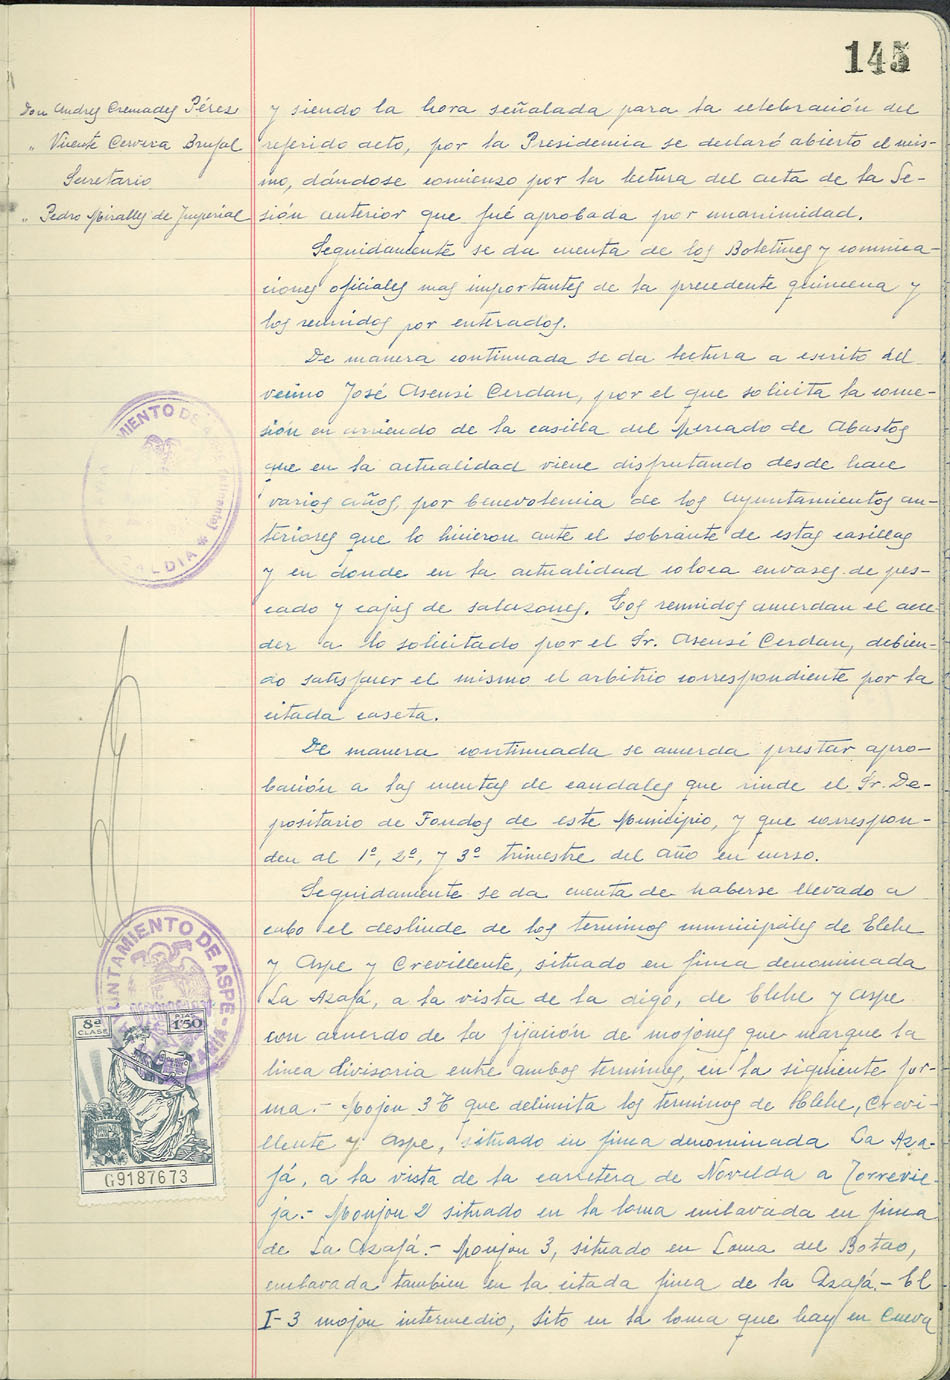 145
Don Andres Cremades Pérez
" Vicente Cervera Brufal
Secretario
" Pedro Miralles de Imperial
y siendo la hora señalada para la celebración del
referido acto, por la Presidencia se declaró abierto el mis-
mo, dándose comienzo por la lectura del acta de la Se-
sión anterior que fué aprobada por unanimidad.
Seguidamente se da cuenta de los Boletines y comunica-
ciones oficiales mas importantes de la precedente quincena y
los reunidos por enterados.
De manera continuada se da lectura a escrito del
vecino José Asensi Cerdan, por el que solicita la conce-
sión en arriendo de la casilla del Mercado de Abastos
que en la actualidad viene disfrutando desde hace
varios años, por benevolencia de los Ayuntamientos an-
teriores que lo hicieron ante el sobrante de estas casillas
y en donde en la actualidad coloca envases de pes-
cado y cajas de salazones. Los reunidos acuerdan el acce-
der a lo solicitado por el Sr. Asensi Cerdan, debien-
do satisfacer el mismo el arbitrio correspondiente por la
citada caseta.
De manera continuada se acuerda prestar apro-
bación a las cuentas de caudales que rinde el Sr. De-
positario de Fondos de este Municipio, y que correspon-
den al 1º, 2º, y 3º trimestre del año en curso.
Seguidamente se da cuenta de haberse llevado a
cabo el deslinde de los terminos municipales de Elche
y Aspe y Crevillente, situado en finca denominada
La Azafá, a la vista de la digo, de Elche y Aspe
con acuerdo de la fijación de mojones que marque la
linea divisoria entre ambos terminos, en la siguiente for-
ma.- Mojon 3 que delimita los terminos de Elche, Crevi-
llente y Aspe, situado en finca denominada La Aza-
fá, a la vista de la carretera de Novelda a Torrevie-
ja.- Monjon 2 situado en la loma enclavada en finca
de La Azafá.- Monjon 3, situado en Loma del Botao,
enclavada tambien en la citada finca de la Azafá.- El
I-3 mojon intermedio, sito en la loma que hay en Cueva
MIENTO DE
(Alicante)
ALCALDIA
UNTAMIENTO DE ASPE
8ª CLASE
PTAS 1'50
G9187673